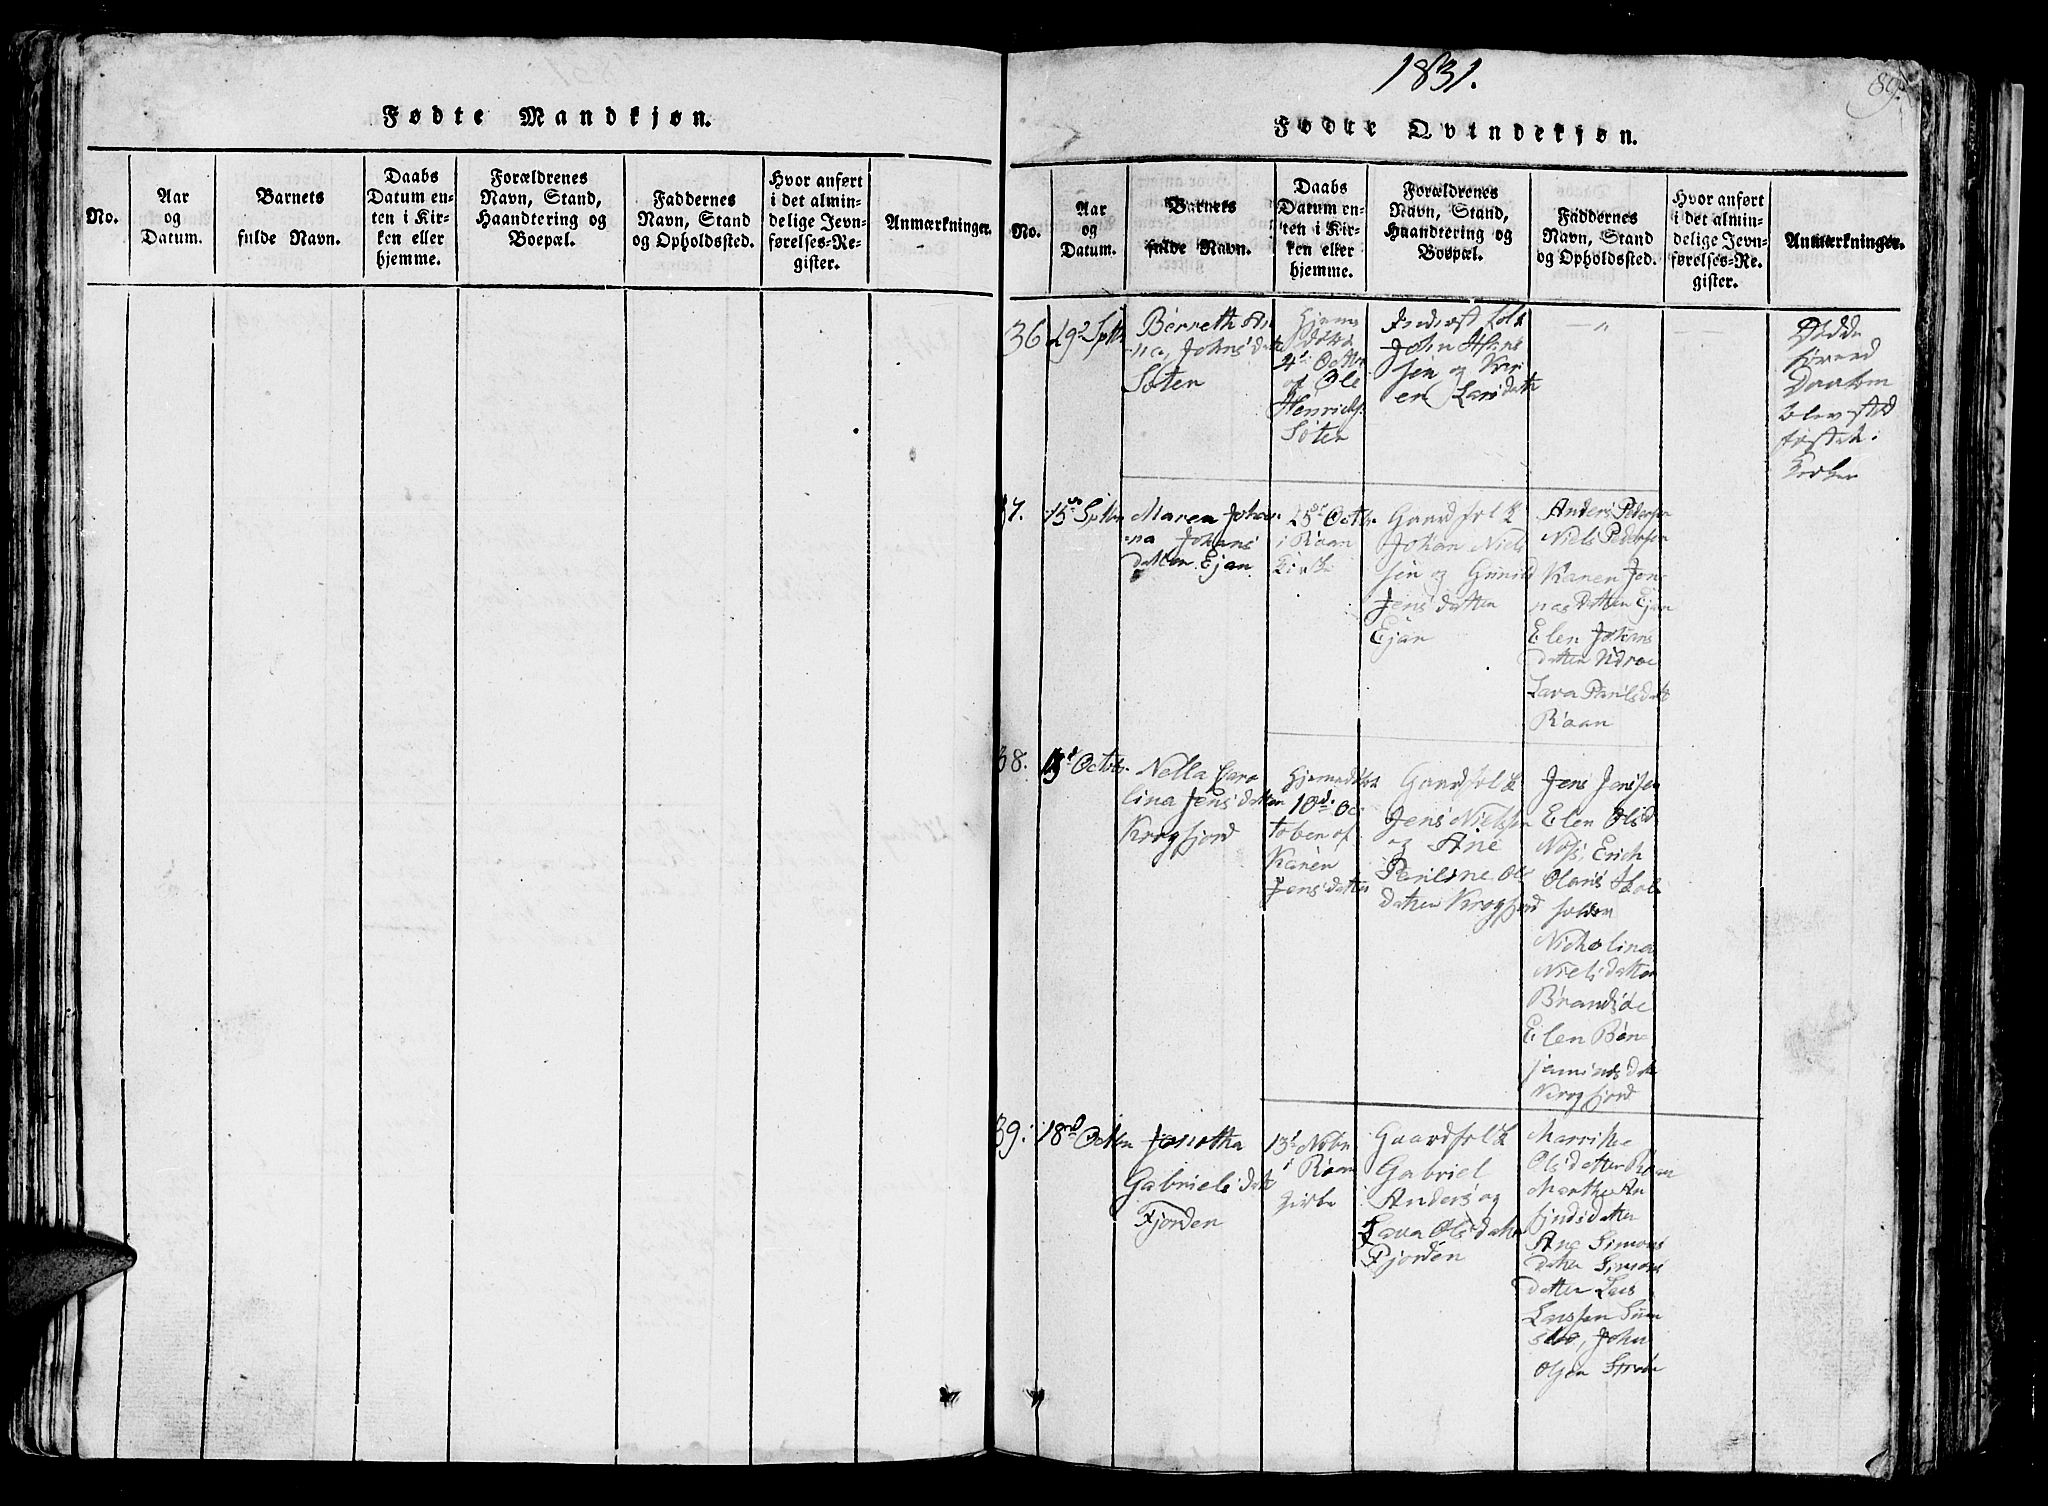 Fødte Mandkjøn.
No.
Aar
og
Datum.
Barnets
fulde Navn.
Daabs
Datum en-
ten i Kir-
ken eller
hjemme.
Forældrenes
Navn, Stand,
Haandtering og
Boepæl.
Faddernes
Navn, Stand
og Opholdssted.
Hvor anført
i det almin-
delige Jevn-
førelses-Re-
gister.
Anmærkninger.
1831.
89.
Fødte Qvindekjøn.
No.
Aar
og
Datum.
Barnets
fulde Navn.
Daabs
Datum en-
ten i Kir-
ken eller
hjemme.
Forældrenes
Navn, Stand,
Haandtering og
Boepæl.
Faddernes
Navn, Stand
og Opholdssted.
Hvor anført
i det almin-
delige Jevn-
førelses-Re-
gister.
Anmærkninger.
36
Berreth
Johns dat
Søten
Hjeme
døbt
4de Octbr
af Ole
Henrichs
Søten
Inderst folk
John Hans
sen og Kar
en Larsdatter
Døde
førend
Daaben
blev stad
fæstet i
Kirken
37.
15de Septbr
Maren Johan
na Johans
datter Ejan
25de Octbr
i Raan
Kirke
Gaardfolk
Johan Niel
sen og Gunild
Jens datter
Ejan
Anders Pedersen
Niels Pedersen
Karen Jon
nas datter Ejan
Elen Johans
datter
Lava Paulsdat
Raan
38.
Octobr.
Nella Caro
lina Jens datter
Krogfjord
Hjemedøbt
10de Oc
tober af
Karen
Jens datter
Gaardfolk
Jens Nielsen
og Ane
Pauline Ols
datter Krogfjord
Jens Jensen
Elen Olsd
Erich
Nicholina
Nielsdatter
Brandsøe
Elen Ben
jamins dat
Krogfjord
39.
18de Octbr
Gabriels dat
Fjorden
13de Nobr
i Raan
Kirke
Gaardfolk
Gabriel
Anders og
Lava Olsdatter
Fjorden
Olsdatter Raan
Marthe An
findsdatter
Ane Simons
datter Simons
datter Lars
Larssen
John
Olsen